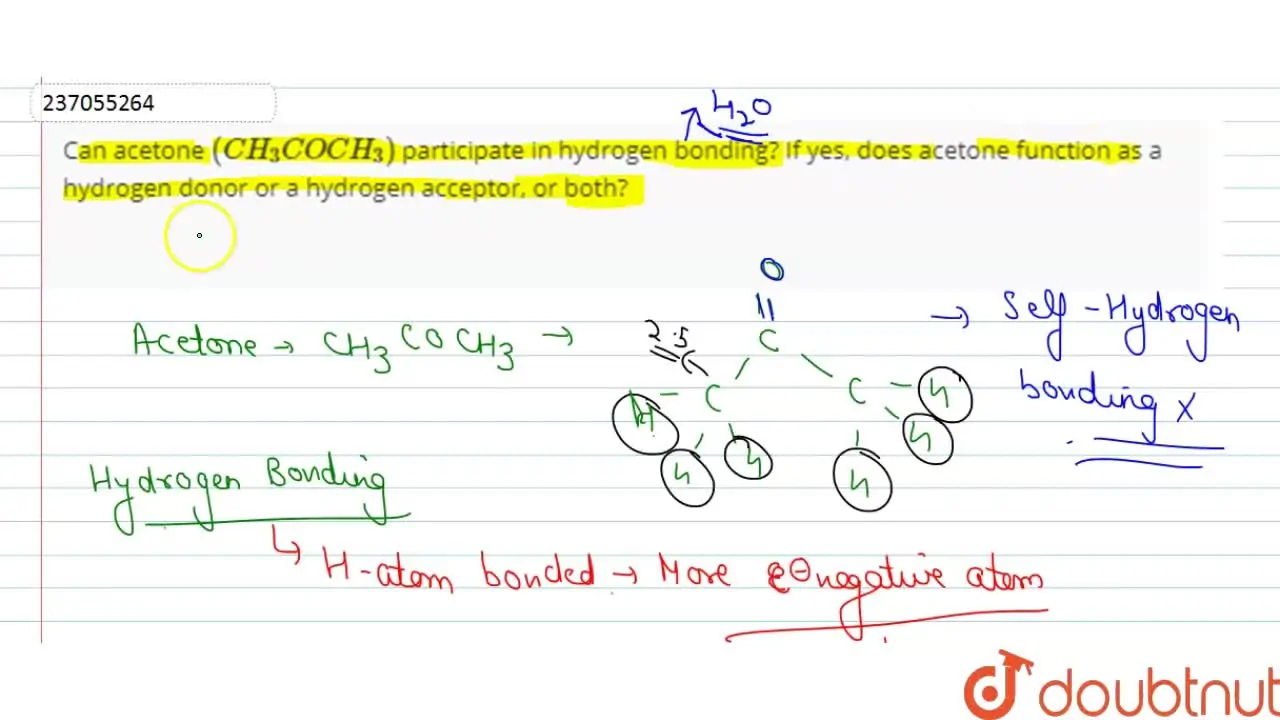 237055264
H2O
Can acetone (CH3COCH3) participate in hydrogen bonding? If yes, does acetone function as a
hydrogen donor or a hydrogen acceptor, or both?
O
Acetone → CH3COCH3 →
2.5
C
→ Self-Hydrogen
bonding X
H C C H
H H H H
Hydrogen Bonding
↳ H-atom bonded → More e⊖negative atom
doubtnut